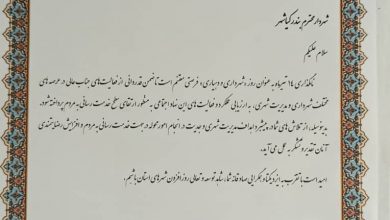 شهردار محترم بندر کیاشهر
سلام علیکم
نامگذاری ۱۴ تیرماه به عنوان روز شهرداری و دهیاری، فرصتی مغتنم است تا ضمن قدردانی از فعالیت‌های جناب عالی در عرصه های
مختلف شهرداری و مدیریت شهری، به ارزیابی عملکرد و فعالیت‌های این نهاد اجتماعی به منظور ارتقای سطح خدمت رسانی به مردم پرداخته شود.
بدینوسیله، از تلاش های شما در پیشبرد اهداف مدیریت شهری و جدیت در انجام امور محوله در جهت خدمت رسانی به مردم و افزایش رضایتمندی
آنان تقدیر و تشکر به عمل می آید.
امید است با تقرب به ایزد یکتا و همکاری صادقانه شما، شاهد توسعه و تعالی روز افزون شهرهای استان باشیم.